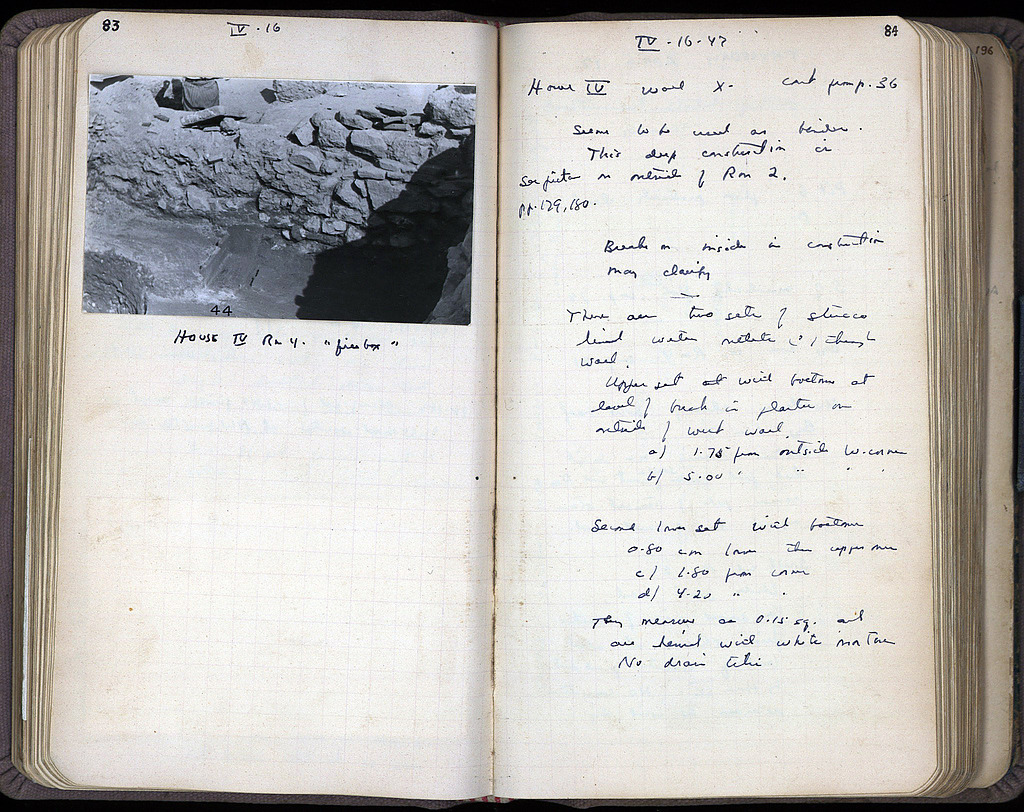 83
IV-16
44
House IV Rm 4. "firebox"
84
IV-16-47
196
House IV wall X- cont from p. 36
Seems to be used as
This deep construction
See on outside of Rm 2.
pp. 179, 180.
Break on inside in construction
may clarify
There are two sets of stucco
lined water through
wall.
Upper set at with bottoms at
level of break in plaster on
outside of west wall.
a/ 1.75 from outside W. corner
b/ 5.00 " " " "
Second lower set with bottoms
0.80 cm lower than upper one
c/ 1.80 from corner
d/ 4.20 " "
They measure ca 0.15 sq. and
are lined with white mortar
No drain tile.